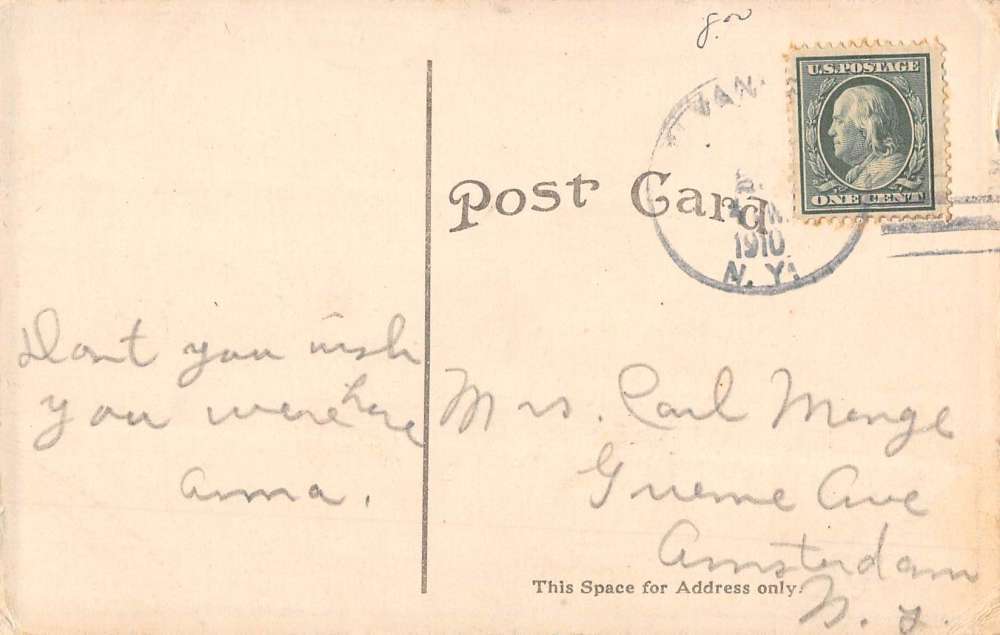 8.00
U.S. POSTAGE
ONE CENT
VAN
1910
N.Y.
Post Card
Dont you wish
you were here
Anna.
Mrs. Carl Menge
Ave
Amsterdam
N.Y.
This Space for Address only.